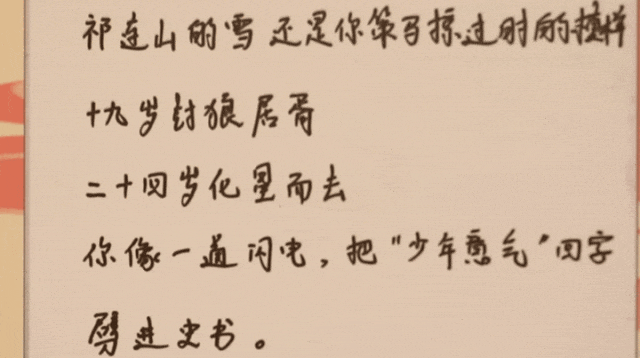 祁连山的雪 还是你策马掠过时的模样
十九岁封狼居胥
二十四岁化星而去
你像一道闪电，把“少年意气”四字
劈进史书。